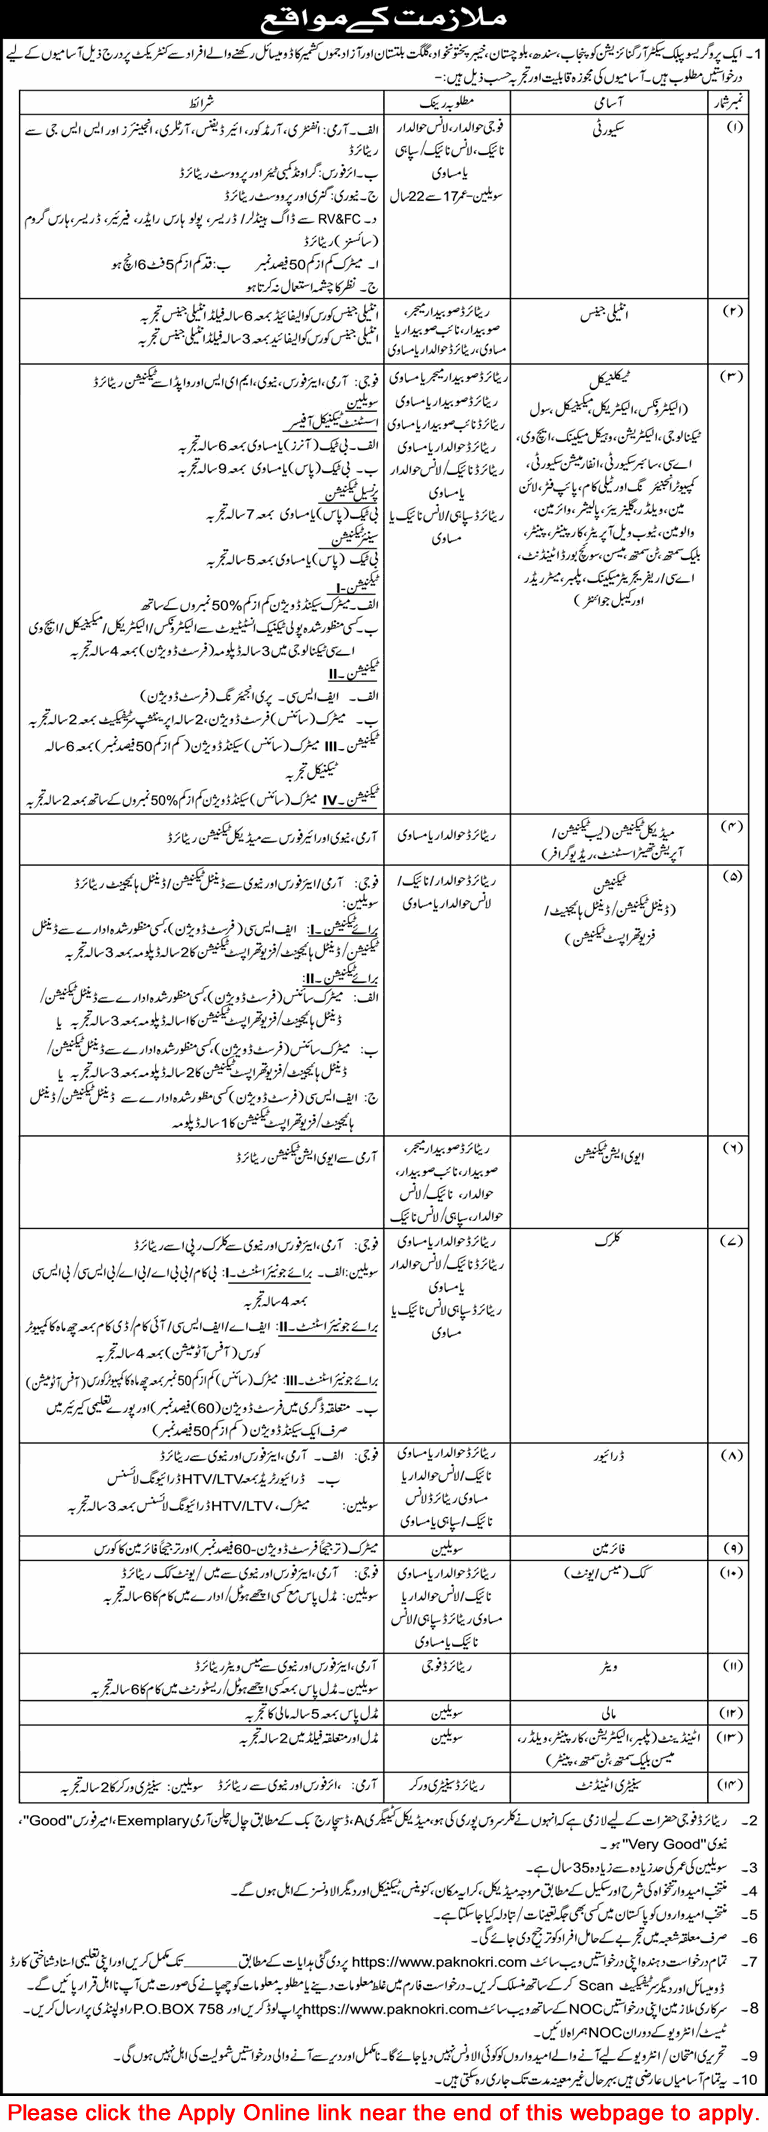 ملازمت کے مواقع
1۔ ایک پروگریسو پبلک سیکٹر آرگنائزیشن کو پنجاب، سندھ، بلوچستان، خیبر پختونخواہ، گلگت بلتستان اور آزاد جموں کشمیر کا ڈومیسائل رکھنے والے افراد سے کنٹریکٹ پر درج ذیل آسامیوں کے لیے
درخواستیں مطلوب ہیں۔ آسامیوں کی مجوزہ قابلیت اور تجربہ حسب ذیل ہیں:-
نمبر شمار آسامی مطلوبہ رینک شرائط
(۱) سکیورٹی
فوجی حوالدار، لانس حوالدار
نائیک، لانس نائیک/ سپاہی
یا مساوی
سویلین-عمر 17 سے 22 سال
الف۔ آرمی: انفنٹری، آرمڈ کور، ائیر ڈیفنس، آرٹلری، انجینئرز اور ایس ایس جی سے
ریٹائرڈ
ب۔ ائرفورس: گراونڈ کمبی ٹیئر اور پرووسٹ ریٹائرڈ
ج۔ نیوری: گنری اور پرووسٹ ریٹائرڈ
د۔ RV&FC سے ڈاگ ہینڈلر/ ڈریسر، پولو ہارس رائیڈر، فیرئیر، ڈریسر، ہارس گروم
(سائسز) ریٹائرڈ
ا۔ میٹرک کم از کم 50 فیصد نمبر ب: قد کم از کم 5 فٹ 6 انچ ہو
ج۔ نظر کا چشمہ استعمال نہ کرتا ہو
(۲) انٹیلی جینس
ریٹائرڈ صوبیدار میجر،
صوبیدار، نائب صوبیدار یا
مساوی، ریٹائرڈ حوالدار یا مساوی
انٹیلی جینس کورس کوالیفائیڈ بمعہ 6 سالہ فیلڈ انٹیلی جینس تجربہ
انٹیلی جینس کورس کوالیفائیڈ بمعہ 3 سالہ فیلڈ انٹیلی جینس تجربہ
(۳) ٹیکلنیکل
(الیکٹرونکس، الیکٹریکل، میکینیکل، سول
ٹیکنالوجی، الیکٹریشن، وہیکل میکینک، ایچ وی،
اے سی، سائبر سکیورٹی، انفارمیشن سکیورٹی،
کمپیوٹر انجینئرنگ اور ٹیلی کام، پائپ فٹر، لائن
مین، ویلڈر، گلیزیئر، پالیشر، وائرمین،
والومین، ٹیوب ویل آپریٹر، کارپینٹر، پینٹر،
بلیک سمتھ، ٹن سمتھ، میسن، سوئچ بورڈ اٹینڈنٹ،
اے سی/ ریفریجریٹر میکینک، پلمبر، میٹر ریڈر
اور کیبل جوائنٹر)
ریٹائرڈ صوبیدار میجر یا مساوی
ریٹائرڈ صوبیدار یا مساوی
ریٹائرڈ نائب صوبیدار یا مساوی
ریٹائرڈ حوالدار یا مساوی
ریٹائرڈ نائیک/ لانس حوالدار
یا مساوی
ریٹائرڈ سپاہی/ لانس نائیک یا
مساوی
فوجی: آرمی، ایئرفورس، نیوی، ایم ای ایس اور واپڈا سے ٹیکنیشن ریٹائرڈ
سویلین
اسسٹنٹ ٹیکنیکل آفیسر
الف۔ بی ٹیک (آنرز) یا مساوی بمعہ 6 سالہ تجربہ
ب۔ بی ٹیک (پاس) یا مساوی بمعہ 9 سالہ تجربہ
پرنسپل ٹیکنیشن
بی ٹیک (پاس) یا مساوی بمعہ 7 سالہ تجربہ
سینئر ٹیکنیشن
بی ٹیک (پاس) یا مساوی بمعہ 5 سالہ تجربہ
ٹیکنیشن-I
الف۔ میٹرک سیکنڈ ڈویژن کم از کم %50 نمبروں کے ساتھ
ب۔ کسی منظور شدہ پولی ٹیکنیک انسٹیٹیوٹ سے الیکٹرونکس/ الیکٹریکل/ میکینیکل/ ایچ وی
اے سی ٹیکنالوجی میں 3 سالہ ڈپلومہ (فرسٹ ڈویژن) بمعہ 4 سالہ تجربہ
ٹیکنیشن۔II
الف۔ ایف ایس سی۔ پری انجینئرنگ (فرسٹ ڈویژن)
ب۔ میٹرک (سائنس) فرسٹ ڈویژن، 2 سالہ اپرینٹشپ سرٹیفکیٹ بمعہ 2 سالہ تجربہ
ٹیکنیشن۔III میٹرک (سائنس) سیکنڈ ڈویژن (کم از کم 50 فیصد نمبر) بمعہ 6 سالہ
ٹیکنیکل تجربہ
ٹیکنیشن۔IV میٹرک (سائنس) سیکنڈ ڈویژن کم از کم %50 نمبروں کے ساتھ بمعہ 2 سالہ تجربہ
(۴) میڈیکل ٹیکنیشن (لیب ٹیکنیشن/
آپریشن تھیٹر اسسٹنٹ، ریڈیوگرافر)
ریٹائرڈ حوالدار یا مساوی
آرمی، نیوی اور ائیرفورس سے میڈیکل ٹیکنیشن ریٹائرڈ
(۵) ٹیکنیشن
(ڈینٹل ٹیکنیشن/ ڈینٹل ہائیجینٹ/
فزیوتھراپسٹ ٹیکنیشن)
ریٹائرڈ حوالدار/ نائیک/
لانس حوالدار یا مساوی
فوجی: آرمی/ ایئرفورس اور نیوی سے ڈینٹل ٹیکنیشن/ ڈینٹل ہائیجینٹ ریٹائرڈ
سویلین:
برائے ٹیکنیشن۔I: ایف ایس سی (فرسٹ ڈویژن)، کسی منظور شدہ ادارے سے ڈینٹل
ٹیکنیشن/ ڈینٹل ہائیجینٹ/ فزیوتھراپسٹ ٹیکنیشن کا 2 سالہ ڈپلومہ بمعہ 3 سالہ تجربہ
برائے ٹیکنیشن۔II:
الف: میٹرک سائنس (فرسٹ ڈویژن)، کسی منظور شدہ ادارے سے ڈینٹل ٹیکنیشن/
ڈینٹل ہائیجینٹ/ فزیوتھراپسٹ ٹیکنیشن کا 1 سالہ ڈپلومہ بمعہ 3 سالہ تجربہ یا
ب: میٹرک سائنس (فرسٹ ڈویژن)، کسی منظور شدہ ادارے سے ڈینٹل ٹیکنیشن/
ڈینٹل ہائیجینٹ/ فزیوتھراپسٹ ٹیکنیشن کا 2 سالہ ڈپلومہ بمعہ 3 سالہ تجربہ یا
ج: ایف ایس سی (فرسٹ ڈویژن) کسی منظور شدہ ادارے سے ڈینٹل ٹیکنیشن/ ڈینٹل
ہائیجینٹ/ فزیوتھراپسٹ ٹیکنیشن کا 1 سالہ ڈپلومہ
(۶) ایوی ایشن ٹیکنیشن
ریٹائرڈ صوبیدار میجر،
صوبیدار، نائب صوبیدار،
حوالدار، نائیک/ لانس
حوالدار، سپاہی/ لانس نائیک
آرمی سے ایوی ایشن ٹیکنیشن ریٹائرڈ
(۷) کلرک
ریٹائرڈ حوالدار یا مساوی
ریٹائرڈ نائیک/ لانس حوالدار
یا مساوی
ریٹائرڈ سپاہی لانس نائیک یا
مساوی
فوجی: آرمی، ایئرفورس اور نیوی سے کلرک رپی اے ریٹائرڈ
سویلین: الف۔ برائے جونیئر اسسٹنٹ۔I: بی کام/ بی بی اے/ بی اے/ بی ایس سی/ بی ایس سی
بمعہ 4 سالہ تجربہ
برائے جونیئر اسسٹنٹ۔II: ایف اے/ ایف ایس سی/ آئی کام/ ڈی کام بمعہ چھ ماہ کا کمپیوٹر
کورس (آفس آٹومیشن) بمعہ 4 سالہ تجربہ
برائے جونیئر اسسٹنٹ۔III: میٹرک (سائنس) کم از کم 50 نمبر بمعہ چھ ماہ کا کمپیوٹر کورس (آفس آٹومیشن)
ب۔ متعلقہ ڈگری میں فرسٹ ڈویژن (60) فیصد نمبر) اور پورے تعلیمی کیرئیر میں
صرف ایک سیکنڈ ڈویژن (کم از کم 50 فیصد نمبر)
(۸) ڈرائیور
ریٹائرڈ حوالدار یا مساوی
نائیک/ لانس حوالدار یا
مساوی ریٹائرڈ لانس
نائیک/ سپاہی یا مساوی
فوجی: الف۔ آرمی، ایئرفورس اور نیوی سے ریٹائرڈ
ب۔ ڈرائیور ٹریڈ بمعہ HTV/LTV ڈرائیونگ لائسنس
سویلین: میٹرک، HTV/LTV ڈرائیونگ لائسنس بمعہ 3 سالہ تجربہ
(۹) فائرمین سویلین میٹرک (ترجیحاً فرسٹ ڈویژن-60 فیصد نمبر) اور ترجیحاً فائرمین کا کورس
(۱۰) کک (میس/ یونٹ)
ریٹائرڈ حوالدار یا مساوی
نائیک/ لانس حوالدار یا
مساوی ریٹائرڈ سپاہی/ لانس
نائیک یا مساوی
فوجی: آرمی، ایئرفورس اور نیوی سے میس/ یونٹ کک ریٹائرڈ
سویلین: مڈل پاس مع کسی اچھے ہوٹل/ ادارے میں کام کا 6 سالہ تجربہ
(۱۱) ویٹر ریٹائرڈ فوجی آرمی، ایئرفورس اور نیوی سے میس ویٹر ریٹائرڈ
سویلین۔ مڈل پاس بمعہ کسی اچھے ہوٹل/ ریسٹورنٹ میں کام کا 6 سالہ تجربہ
(۱۲) مالی سویلین مڈل پاس بمعہ 5 سالہ مالی کا تجربہ
(۱۳) اٹینڈینٹ (پلمبر، الیکٹریشن، کارپینٹر، ویلڈر،
میسن بلیک سمتھ، ٹن سمتھ، پینٹر)
سویلین مڈل اور متعلقہ فیلڈ میں 2 سالہ تجربہ
(۱۴) سینیٹری اٹینڈنٹ ریٹائرڈ سینیٹری ورکر آرمی: ،ائرفورس اور نیوی سے ریٹائرڈ سویلین: سینیٹری ورکر کا 2 سالہ تجربہ
2۔ ریٹائرڈ فوجی حضرات کے لیے لازمی ہے کہ انہوں نے کلر سروس پوری کی ہو، میڈیکل کیٹیگری A، ڈسچارج بک کے مطابق چال چلن آرمی Exemplary، ایئرفورس "Good"،
نیوی "Very Good" ہو۔
3۔ سویلین کی عمر کی حد زیادہ سے زیادہ 35 سال ہے۔
4۔ منتخب امیدوار تنخواہ کی شرح اور سکیل کے مطابق مروجہ میڈیکل، کرایہ مکان، کنوینس، ٹیکنیکل اور دیگر الاونسز کے اہل ہوں گے۔
5۔ منتخب امیدواروں کو پاکستان میں کسی بھی جگہ تعینات/ تبادلہ کیا جاسکتا ہے۔
6۔ صرف متعلقہ شعبہ میں تجربے کے حامل افراد کو ترجیح دی جائے گی۔
7۔ تمام درخواست دہندہ اپنی درخواستیں ویب سائٹ https://www.paknokri.com پر دی گئی ہدایات کے مطابق ________ تک مکمل کریں اور اپنی تعلیمی اسناد شناختی کارڈ
ڈومیسائل اور دیگر سرٹیفکیٹ Scan کر کے ساتھ منسلک کریں۔ درخواست فارم میں غلط معلومات دینے یا مطلوبہ معلومات کو چھپانے کی صورت میں آپ نااہل قرار پائیں گے۔
8۔ سرکاری ملازمین اپنی درخواستیں NOC کے ساتھ ویب سائٹ https://www.paknokri.com پر اپ لوڈ کریں اور P.O.BOX 758 راولپنڈی پر ارسال کریں۔
ٹیسٹ/ انٹرویو کے دوران NOC ہمراہ لائیں۔
9۔ تحریری امتحان/ انٹرویو کے لیے آنے والے امیدواروں کو کوئی الاونس نہیں دیا جائے گا۔ نامکمل اور دیر سے آنے والی درخواستیں شمولیت کی اہل نہیں ہوں گی۔
10۔ یہ تمام آسامیاں عارضی ہیں بہر حال غیر معینہ مدت تک جاری رہ سکتی ہیں۔
Please click the Apply Online link near the end of this webpage to apply.